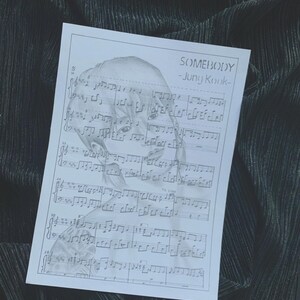 SOMEBODY
-Jung Kook-